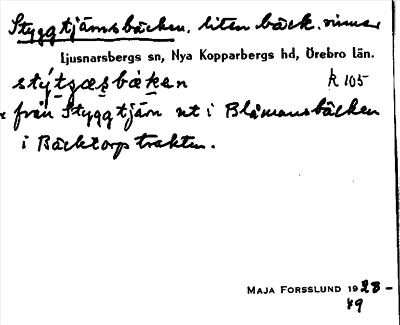 Styggtjärnsbäcken, liten bäck, rinner
Ljusnarsbergs sn, Nya Kopparbergs hd, Örebro län.
k 105
från Styggtjärn ut i Blåmansbäcken
i Bäcktorpstrakten.
MAJA FORSSLUND 1928-
49